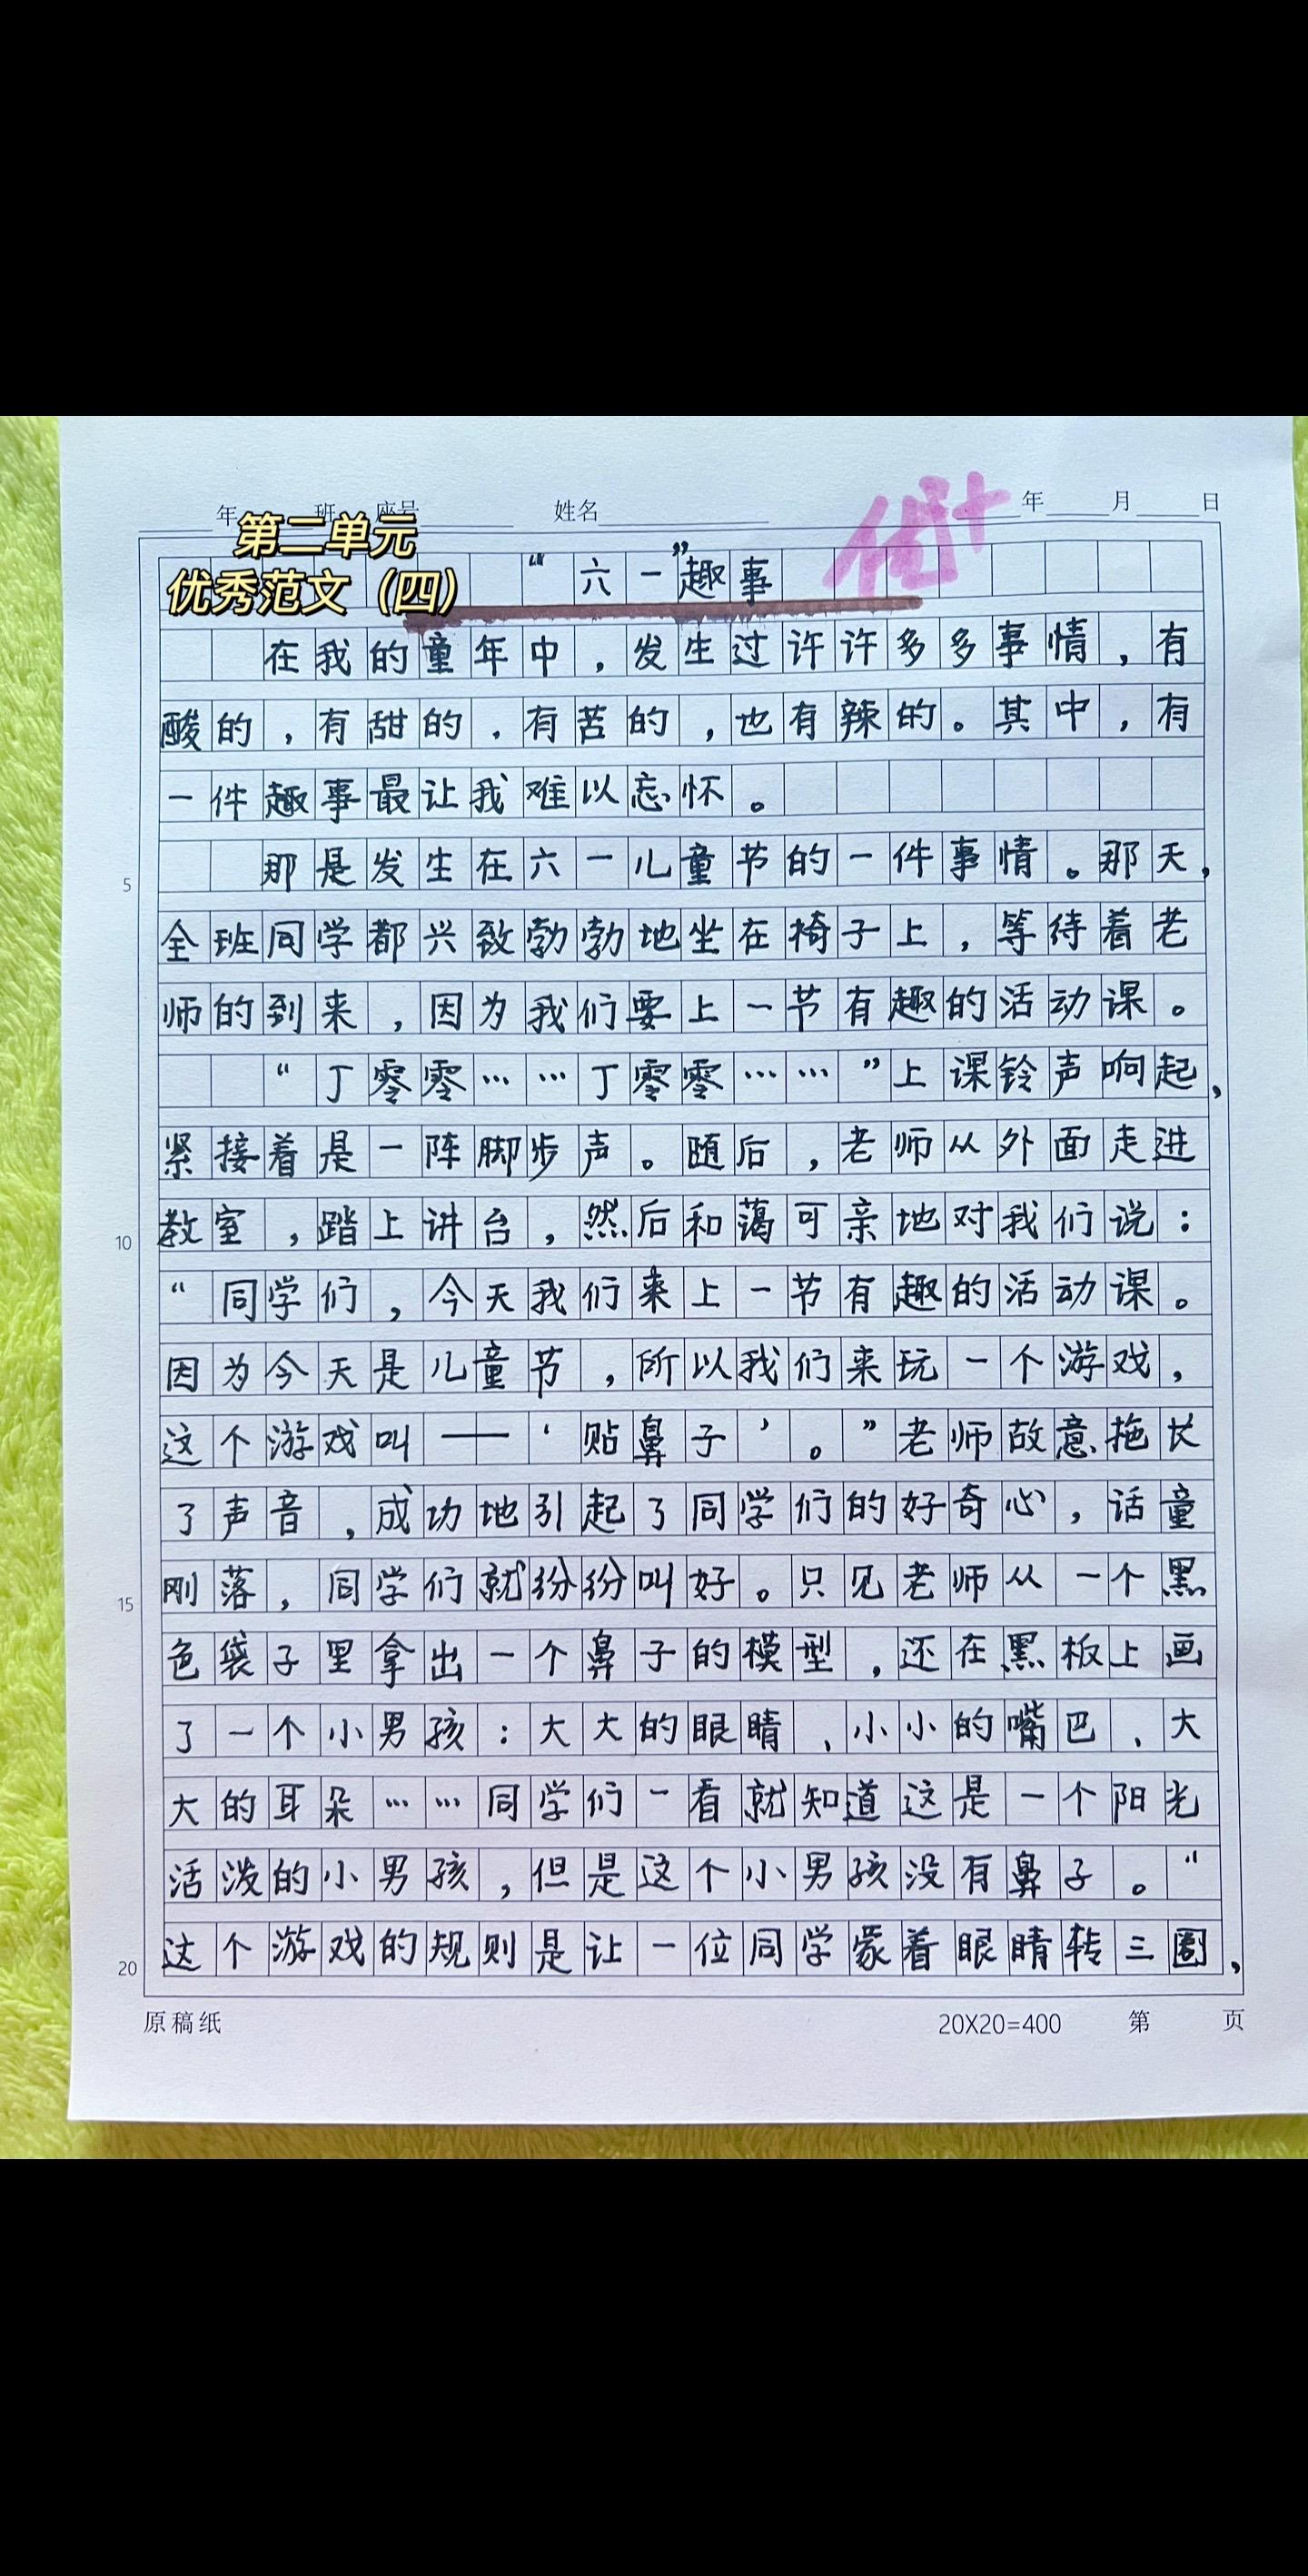 年 班 座号 姓名 年 月 日
第二单元
优秀范文（四）
优+
“六一”趣事
在我的童年中，发生过许许多多事情，有
酸的，有甜的，有苦的，也有辣的。其中，有
一件趣事最让我难以忘怀。
那是发生在六一儿童节的一件事情。那天，
5
全班同学都兴致勃勃地坐在椅子上，等待着老
师的到来，因为我们要上一节有趣的活动课。
“丁零零……丁零零……”上课铃声响起，
紧接着是一阵脚步声。随后，老师从外面走进
教室，踏上讲台，然后和蔼可亲地对我们说：
10
“同学们，今天我们来上一节有趣的活动课。
因为今天是儿童节，所以我们来玩一个游戏，
这个游戏叫——‘贴鼻子’。”老师故意拖长
了声音，成功地引起了同学们的好奇心，话童
刚落，同学们就纷纷叫好。只见老师从一个黑
15
色袋子里拿出一个鼻子的模型，还在黑板上画
了一个小男孩：大大的眼睛、小小的嘴巴、大
大的耳朵……同学们一看就知道这是一个阳光
活泼的小男孩，但是这个小男孩没有鼻子。“
这个游戏的规则是让一位同学蒙着眼睛转三圈，
20
原稿纸 20X20=400 第 页